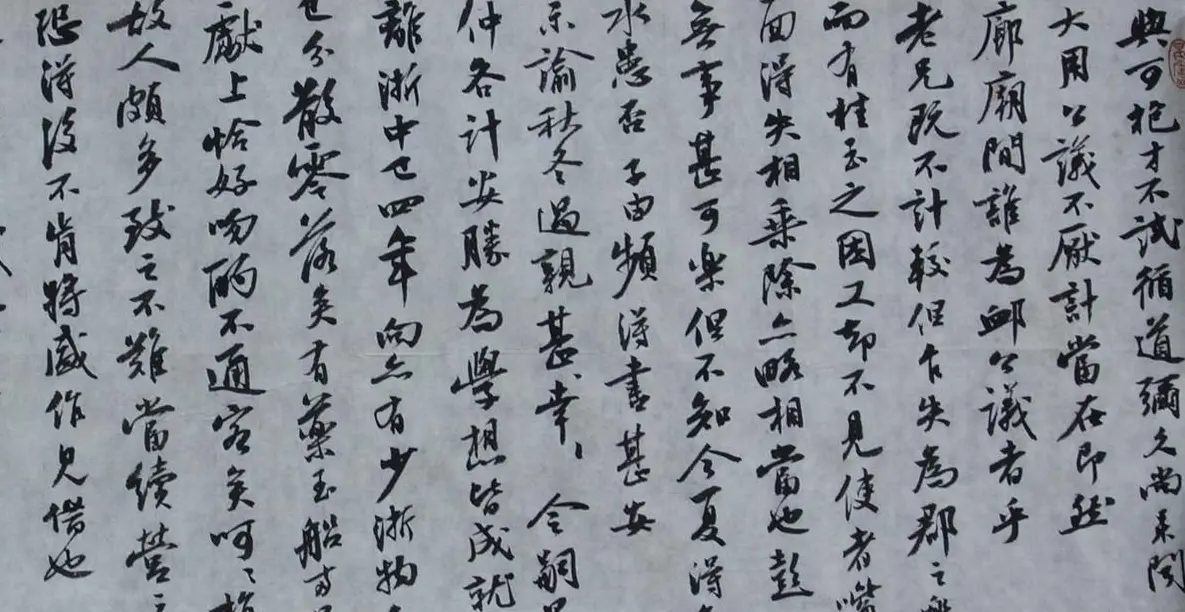 與可抱才不試循道彌久尚未聞
大用公議不厭計當在即然
廊廟間誰為卹公議者乎
老兄既不計較但乍失為郡之
而有桂玉之困又却不見使者嘴
面得失相乘除亦略相當也彭
無事甚可樂但不知今夏得
水患否子由頻得書甚安
示諭秋冬過親甚幸甚幸令嗣
仲各計安勝為學想皆成就
離浙中已四年向亦有少浙物
已分散零落矣有藥玉船
獻上恰好吻酌不通客矣呵呵
故人頗多致之不難當續營之
恐得後不肯將盛作見借也